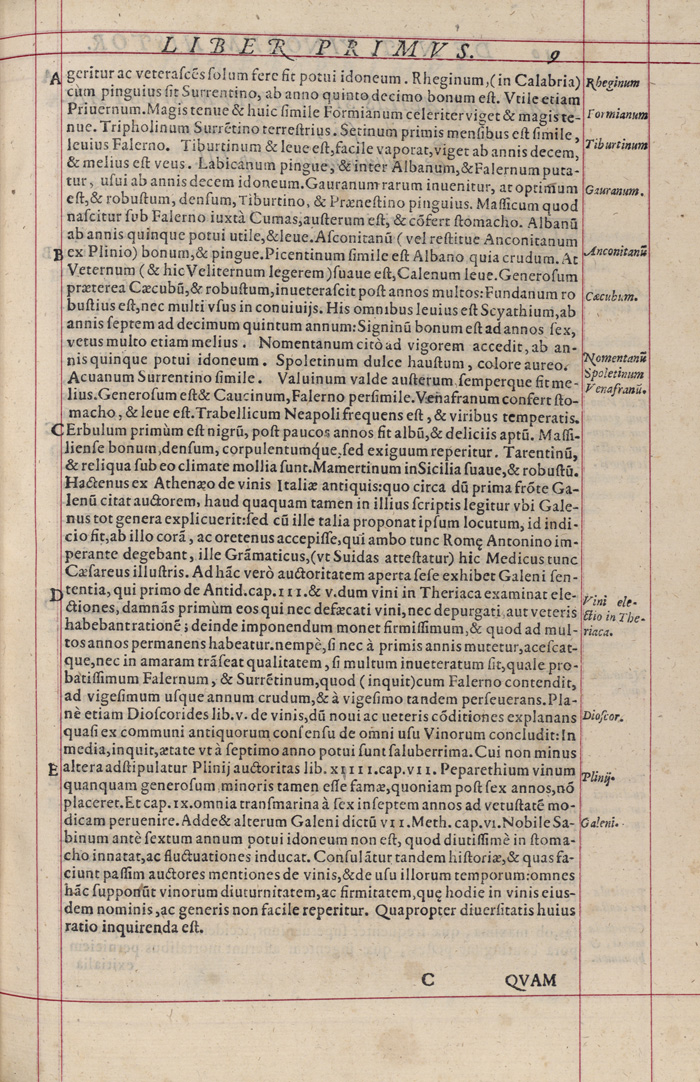 LIBER PRIMVS. 9
A geritur ac veterascẽs solum fere fit potui idoneum. Rheginum,(in Calabria) Rheginum
cùm pinguius sit Surrentino, ab anno quinto decimo bonum est. Vtile etiam
Priuernum. Magis tenue & huic simile Formianum celeriter viget & magis te- Formianum
nue. Tripholinum Surrẽtino terrestrius. Setinum primis mensibus est simile,
leuius Falerno. Tiburtinum & leue est, facile vaporat, viget ab annis decem, Tiburtinum
& melius est veus. Labicanum pingue, & inter Albanum, & Falernum puta-
tur, usui ab annis decem idoneum. Gauranum rarum inuenitur, at optimum Gauranum.
est, & robustum, densum, Tiburtino, & Prænestino pinguius. Massicum quod
nascitur sub Falerno iuxtà Cumas, austerum est, & cõfert stomacho. Albanũ
ab annis quinque potui utile, & leue. Asconitanũ (vel restitue Anconitanum
B ex Plinio) bonum, & pingue. Picentinum simile est Albano quia crudum. At Anconitanũ
Veternum (& hic Veliternum legerem) suaue est, Calenum leue. Generosum
præterea Cæcubũ, & robustum, inueterascit post annos multos: Fundanum ro Cæcubum.
bustius est, nec multi vsus in conuiuijs. His omnibus leuius est Scyathium, ab
annis septem ad decimum quintum annum: Signinũ bonum est ad annos sex,
vetus multo etiam melius. Nomentanum citò ad vigorem accedit, ab an-
nis quinque potui idoneum. Spoletinum dulce haustum, colore aureo. Nomentanũ
Acuanum Surrentino simile. Valuinum valde austerum semperque fit me- Spoletinum
lius. Generosum est & Caucinum, Falerno persimile. Venafranum confert sto- Venafranũ.
macho, & leue est. Trabellicum Neapoli frequens est, & viribus temperatis.
C Erbulum primùm est nigrũ, post paucos annos fit albũ, & deliciis aptũ. Massi-
liense bonum, densum, corpulentumq́ue, sed exiguum reperitur. Tarentinũ,
& reliqua sub eo climate mollia sunt. Mamertinum in Sicilia suaue, & robustũ.
Hactenus ex Athenæo de vinis Italiæ antiquis: quo circa dũ prima frõte Ga-
lenũ citat auctorem, haud quaquam tamen in illius scriptis legitur vbi Gale-
nus tot genera explicuerit: sed cũ ille talia proponat ipsum locutum, id indi-
cio fit, ab illo corã, ac oretenus accepisse, qui ambo tunc Romę Antonino im-
perante degebant, ille Grãmaticus, (vt Suidas attestatur) hic Medicus tunc
Cæsareus illustris. Ad hãc verò auctoritatem aperta sese exhibet Galeni sen-
D tentia, qui primo de Antid. cap. III. & v. dum vini in Theriaca examinat ele- Vini ele-
ctiones, damnãs primùm eos qui nec defæcati vini, nec depurgati aut veteris ctio in The-
habebant rationẽ; deinde imponendum monet firmissimum, & quod ad mul- riaca.
tos annos permanens habeatur. nempè, si nec à primis annis mutetur, acescat-
que, nec in amaram trãseat qualitatem, si multum inueteratum sit, quale pro-
batissimum Falernum, & Surrẽtinum, quod (inquit) cum Falerno contendit,
ad vigesimum usque annum crudum, & à vigesimo tandem perseuerans. Pla-
nè etiam Dioscorides lib. v. de vinis, dũ noui ac ueteris cõditiones explanans Dioscor.
quasi ex communi antiquorum consensu de omni usu Vinorum concludit: In
media, inquit, ætate vt à septimo anno potui sunt saluberrima. Cui non minus
E altera adstipulatur Plinij auctoritas lib. XIIII. cap. VII. Peparethium vinum Plinij.
quanquam generosum minoris tamen esse famæ, quoniam post sex annos, nõ
placeret. Et cap. IX. omnia transmarina à sex in septem annos ad vetustatẽ mo-
dicam peruenire. Adde & alterum Galeni dictũ VII. Meth. cap. VI. Nobile Sa- Galeni.
binum antè sextum annum potui idoneum non est, quod diutissimè in stoma-
cho innatat, ac fluctuationes inducat. Consulãtur tandem historiæ, & quas fa-
ciunt passim auctores mentiones de vinis, & de usu illorum temporum: omnes
hãc supponũt vinorum diuturnitatem, ac firmitatem, quę hodie in vinis eius-
dem nominis, ac generis non facile reperitur. Quapropter diuersitatis huius
ratio inquirenda est.
C QVAM